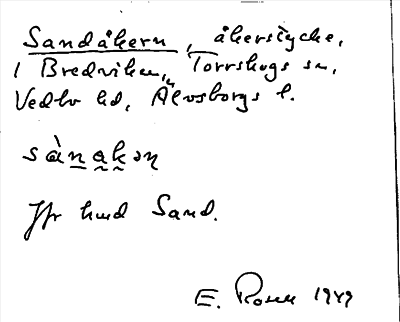 Sandåkern, åkerstycke,
i Bredviken, Torrskogs sn,
Vedbo hd, Älvsborgs l.
sànakən
Jfr Sand.
E. Rosell 1949